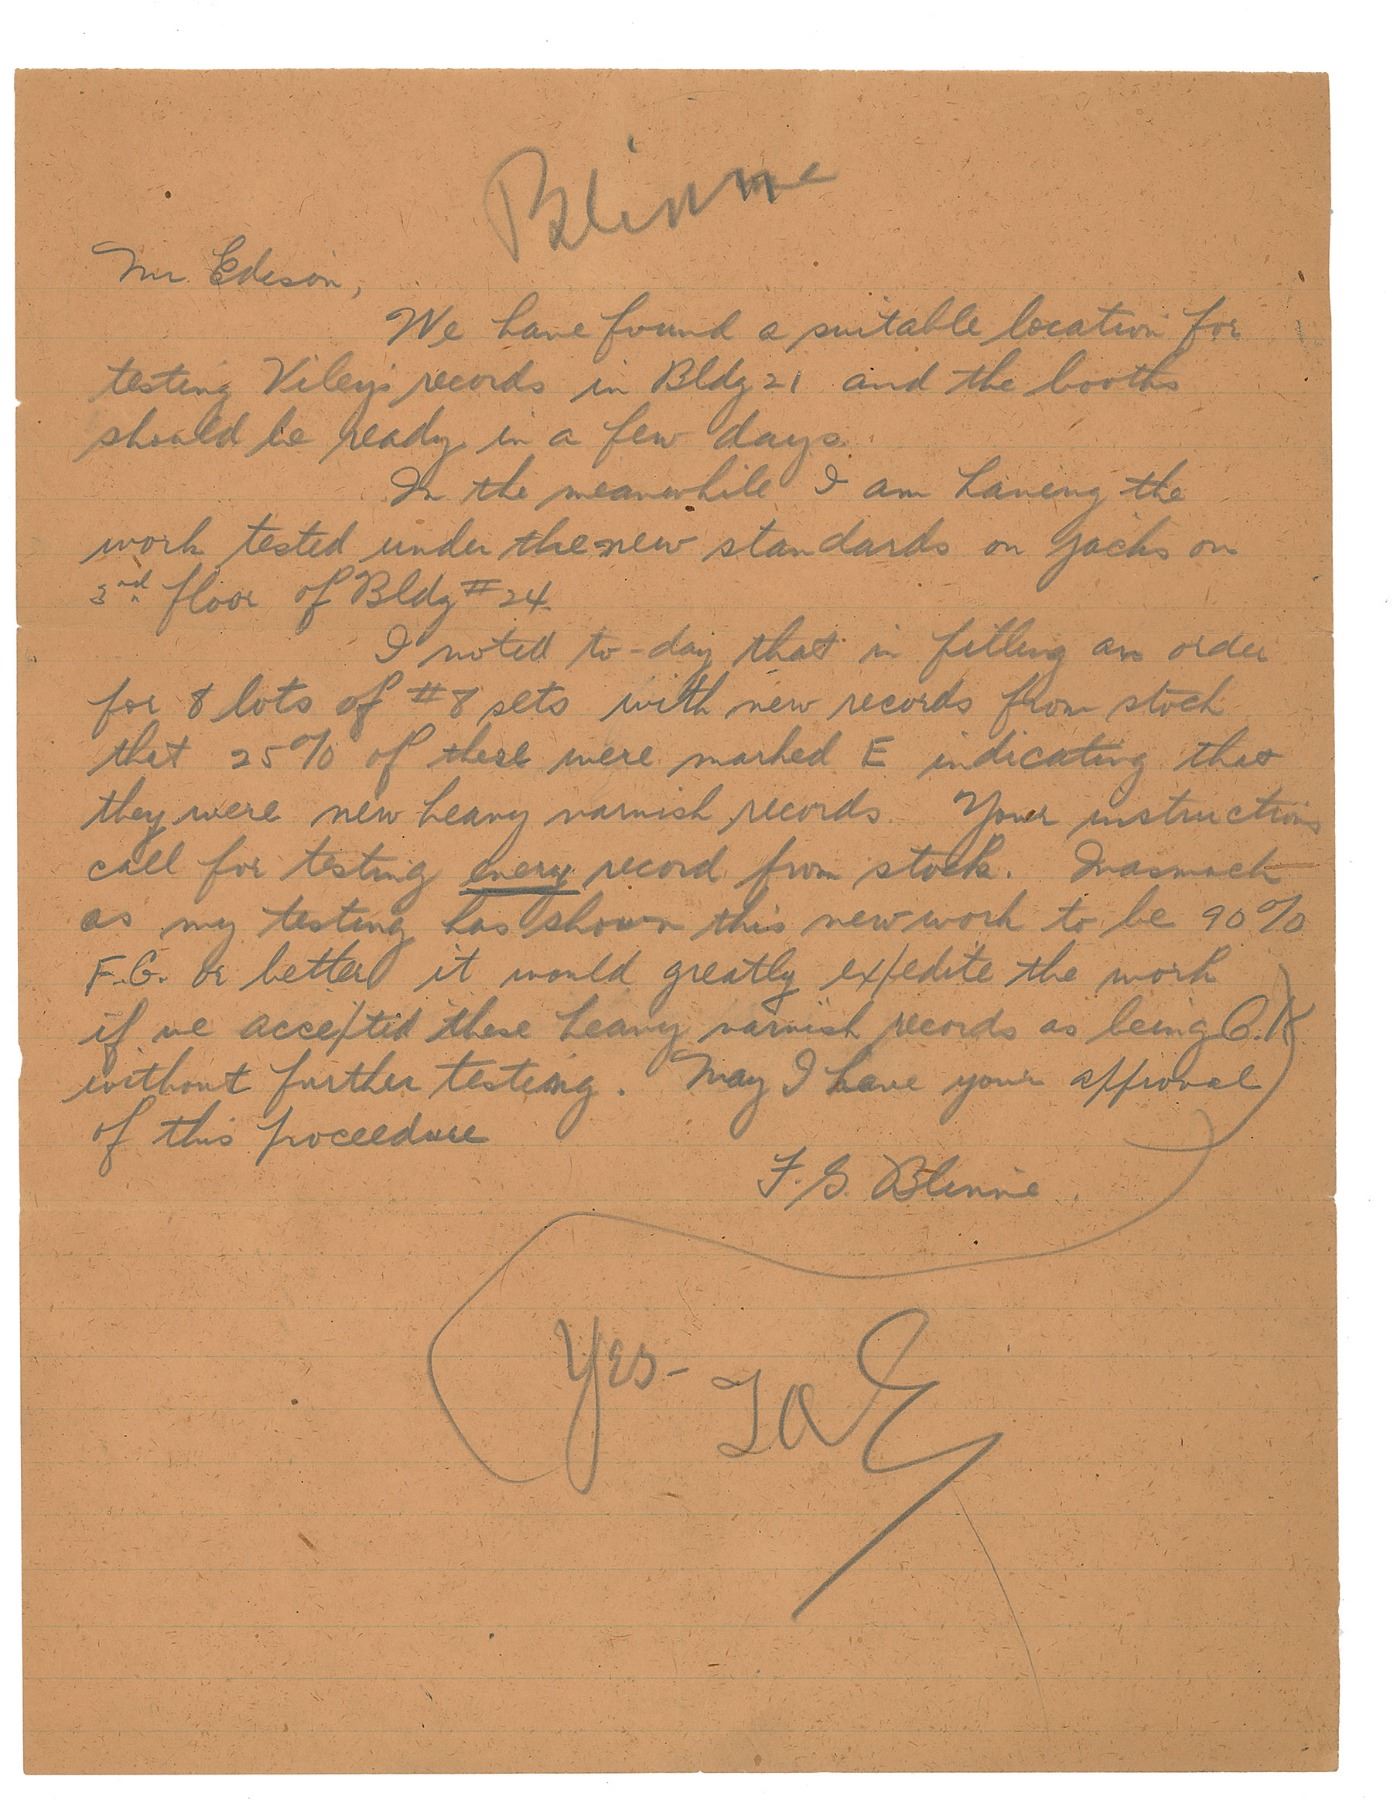 Blinne
Mr. Edison,
We have found a suitable location for
testing Viley's records in Bldg 21 and the booths
should be ready in a few days.
In the meanwhile I am having the
work tested under the new standards on jacks on
3rd floor of Bldg #24.
I noted to-day that in filling an order
for 8 lots of #8 sets with new records from stock
that 25% of these were marked E indicating that
they were new heavy varnish records. Your instructions
call for testing every record from stock. Inasmuch
as my testing has shown this new work to be 90%
F.G. or better it would greatly expedite the work
if we accepted these heavy varnish records as being O.K
without further testing. May I have your approval
of this proceedure
F. G. Blinne.
Yes-
TAE